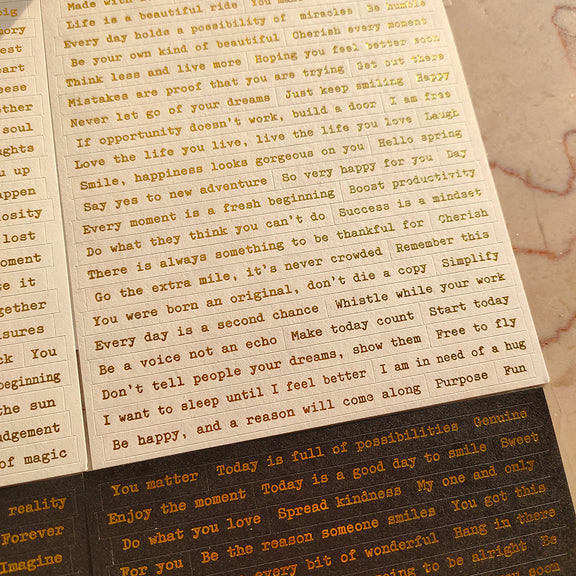 big
mory
est
art
eese
other
soul
ughts
u up
appen
iosity
lost
oment
te it
ogether
sures
ck You
beginning
the sun
udgement
of magic
Made with
Life is a beautiful ride You ma
Every day holds a possibility of miracles Be humble
Be your own kind of beautiful Cherish every moment
Think less and live more Hoping you feel better soon
Mistakes are proof that you are trying Get out there
Never let go of your dreams Just keep smiling Happy
If opportunity doesn't work, build a door I am free
Love the life you live, live the life you love Laugh
Smile, happiness looks gorgeous on you Hello spring
Say yes to new adventure So very happy for you Day
Every moment is a fresh beginning Boost productivity
Do what they think you can't do Success is a mindset
There is always something to be thankful for Cherish
Go the extra mile, it's never crowded Remember this
You were born an original, don't die a copy Simplify
Every day is a second chance Whistle while your work
Be a voice not an echo Make today count Start today
Don't tell people your dreams, show them Free to fly
I want to sleep until I feel better I am in need of a hug
Be happy, and a reason will come along Purpose Fun
reality
Forever
Imagine
You matter Today is full of possibilities Genuine
Enjoy the moment Today is a good day to smile Sweet
Do what you love Spread kindness My one and only
For you Be the reason someone smiles You got this
every bit of wonderful Hang in there
going to be alright Be
soon